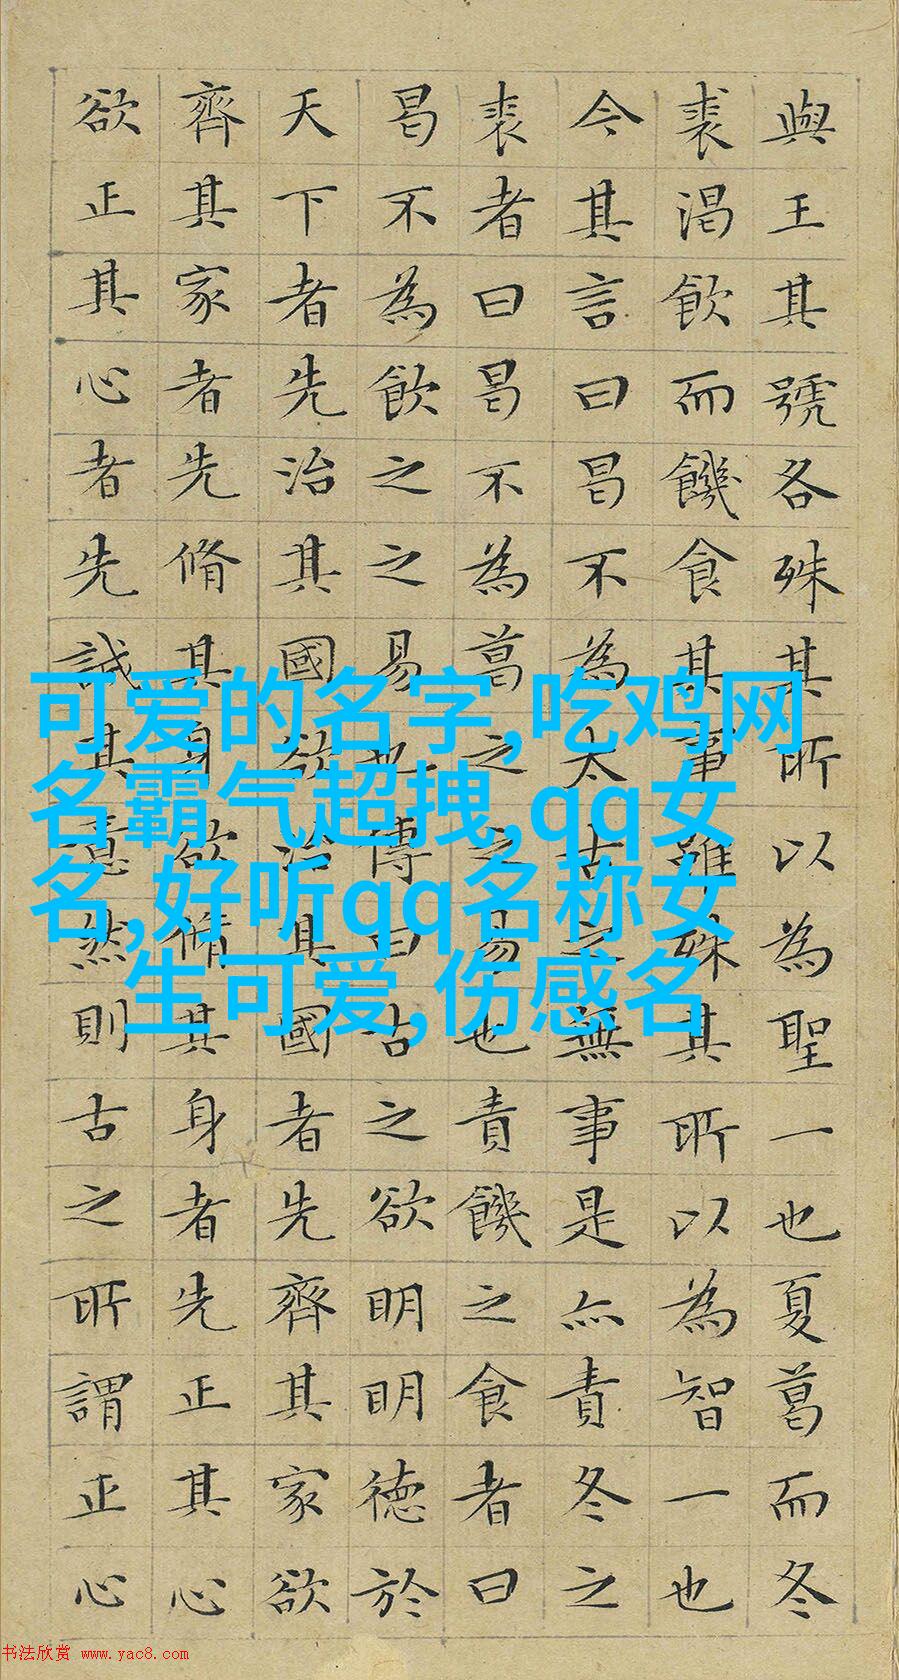 與王其號各殊其所以為聖一也夏葛而冬
裘渴飲而饑食其事雖殊其所以為智一也
今其言曰曷不為太古之無事是亦責冬之
裘者曰曷不為葛之之易也責饑之食者曰
曷不為飲之之易也傳曰古之欲明明德於
天下者先治其國欲治其國者先齊其家欲
齊其家者先脩其身欲脩其身者先正其心
欲正其心者先誠其意然則古之所謂正心
可爱的名字,吃鸡网
名霸气超拽,qq女
名,好听qq名称女
生可爱,伤感名
书法欣赏 www.yac8.com